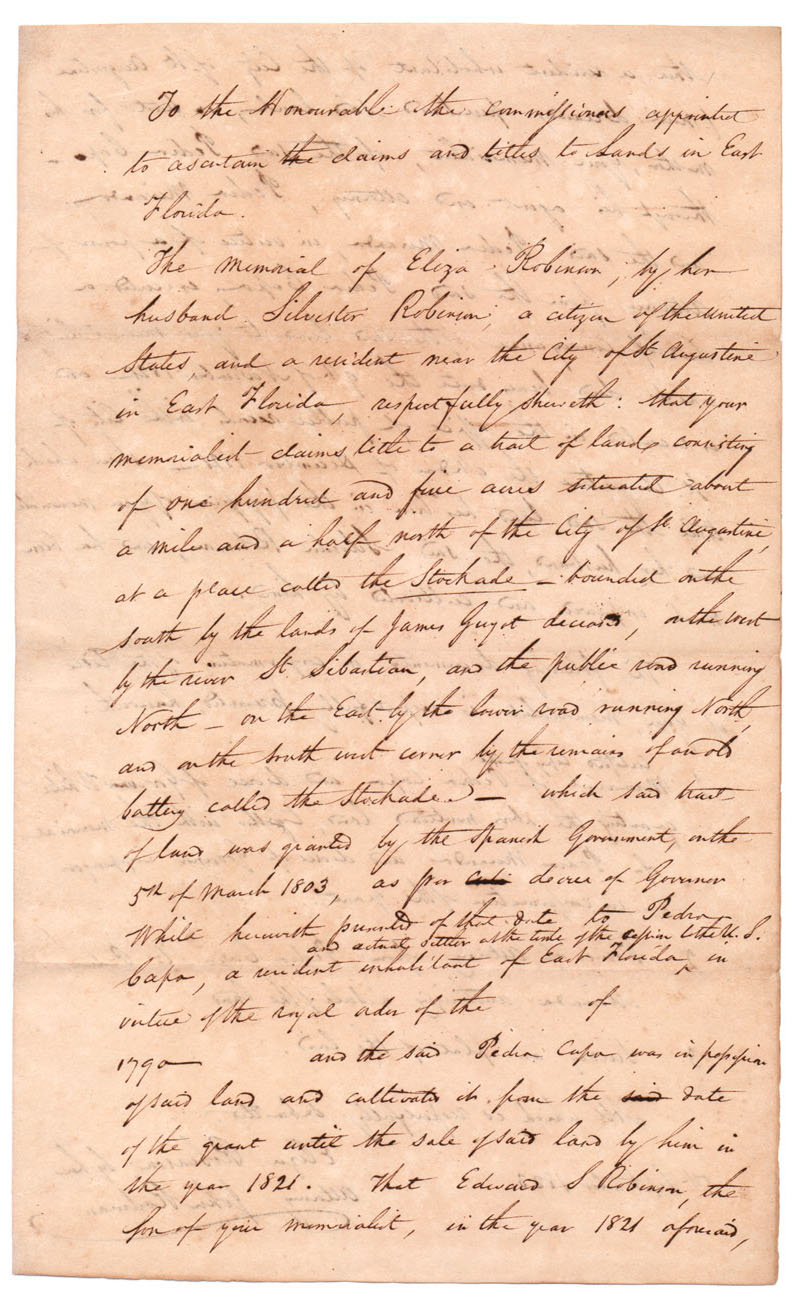 To the Honourable the commissioners appointed
to ascertain the claims and titles to Lands in East
Florida.
The memorial of Eliza Robinson, by her
husband Silvester Robinson, a citizen of the United
States, and a resident near the City of St Augustine
in East Florida, respectfully sheweth: that your
memorialist claims title to a tract of land consisting
of one hundred and five acres situated about
a mile and a half north of the City of St. Augustine,
at a place called the Stockade – bounded on the
south by the lands of James Guyot deceased, on the west
by the river St. Sibastian, and the public road running
North – on the East by the lower road running North,
and on the south west corner by the remains of an old
battery called the Stockade. – which said tract
of land was granted by the Spanish Government, on the
5th of March 1803, as per decree of Governor
White herewith presented of that date to Pedro
and actual settler at the time of the cession to the U.S.
Capo, a resident inhabitant of East Florida, in
virtue of the royal order of the of
1790 and the said Pedro Capo was in possession
of said land and cultivated it from the said date
of the grant until the sale of said land by him in
the year 1821. That Edward S Robinson, the
son of your memorialist, in the year 1821 aforesaid,